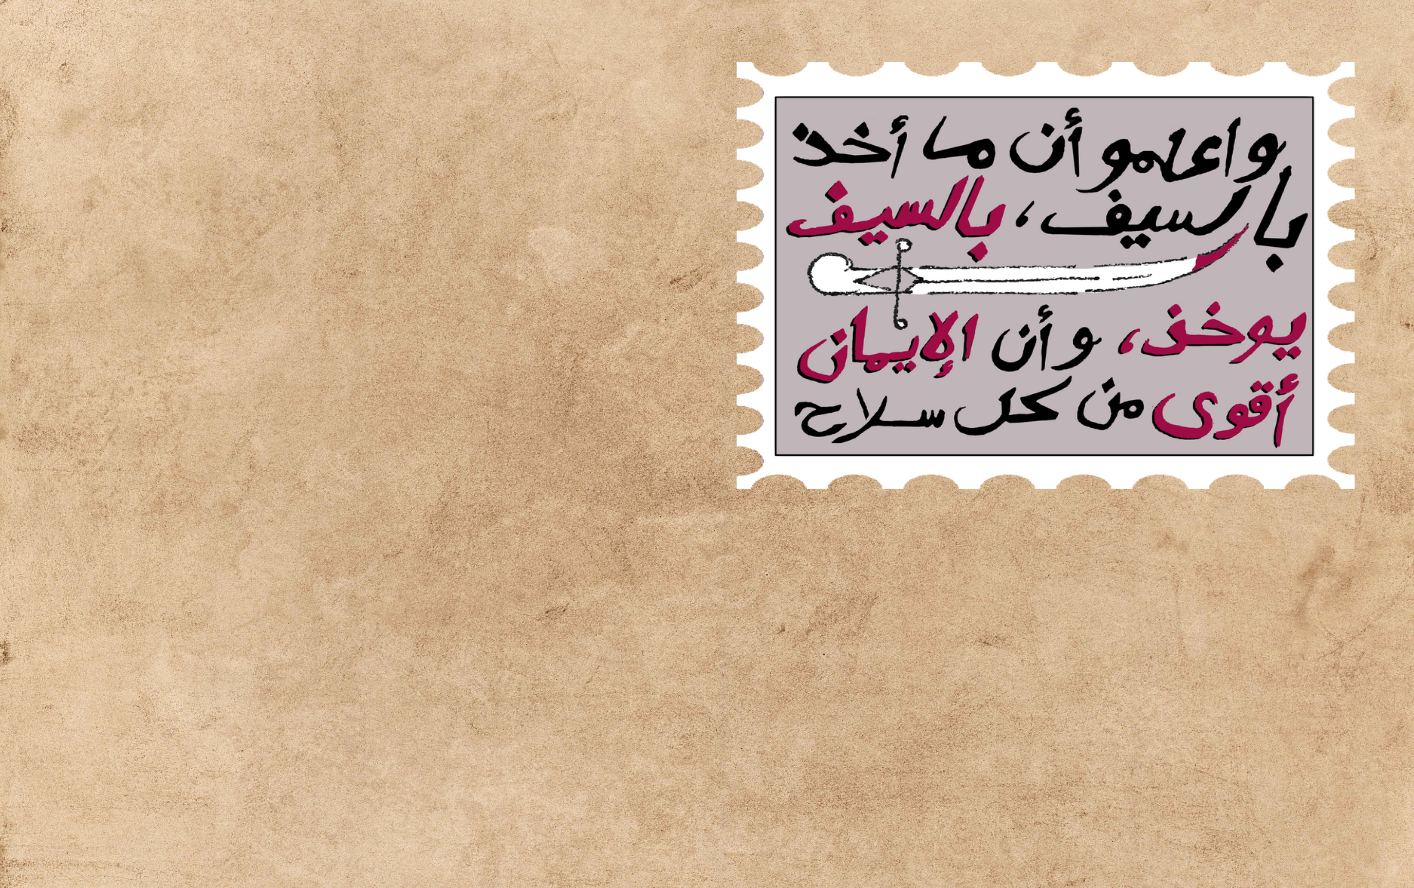 واعلمو أن ما أخذ
بالسيف، بالسيف
يوخذ، وأن الإيمان
أقوى من كل سلاح